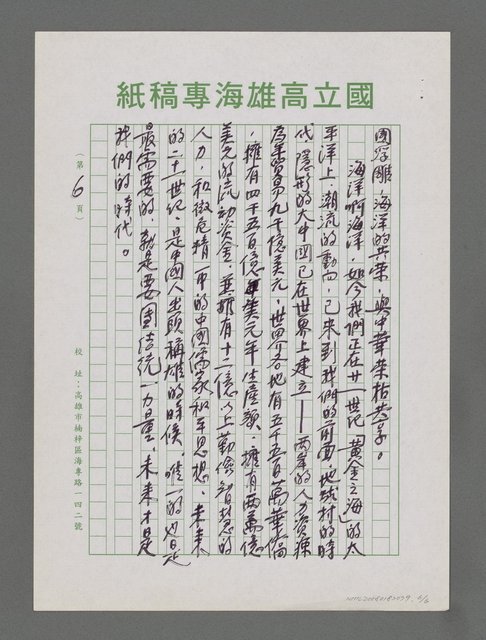 國立高雄海專稿紙
國浮雕,海洋的共榮,與中華榮枯共享。
海洋啊海洋,如今我們正在廿一世紀「黃金之海」的太
平洋上,潮流的動向,已來到我們的前面,地球村的時
代,隱形的大中國已在世界上建立——兩岸的人力資源
為年貿易九千億美元,世界各地有五千五百萬華僑
,擁有四千五百億美元年生產額,擁有兩萬億
美元的流動資金,並擁有十二億以上勤儉智慧的
人力,和微危精一中的中國儒家和平思想,未來
的二十一世紀,是中國人出頭稱雄的時候,唯一的也是
最需要的,就是要團結統一力量,未來才是
我們的時代。
(第6頁)
校址:高雄市楠梓區海專路一四二號